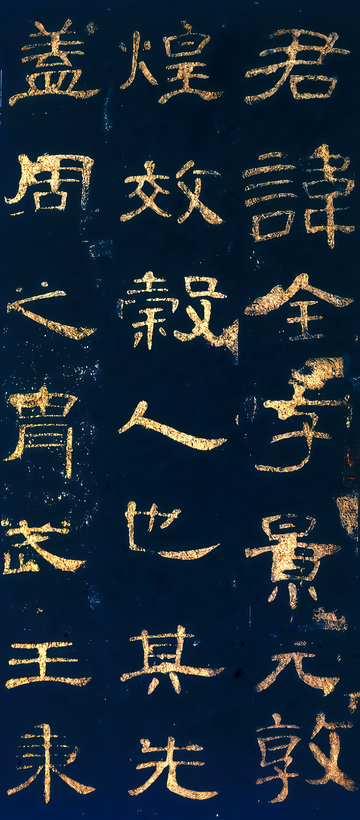 君諱全字景元敦
煌效穀人也其先
蓋周之胄武王秉